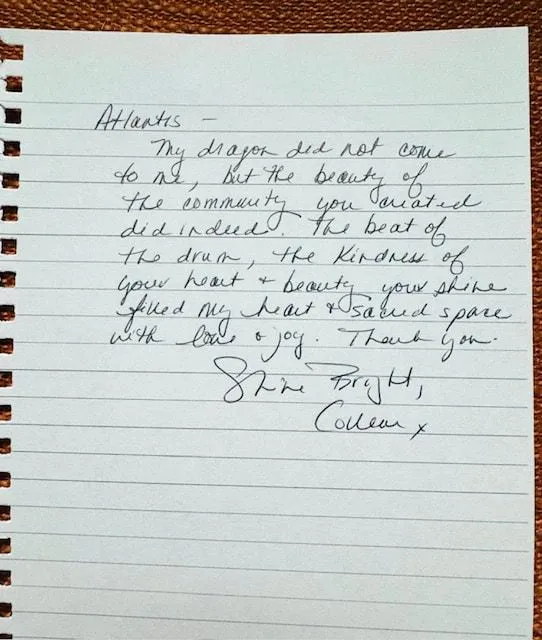 Atlantis –
My dragon did not come
to me, but the beauty of
the community you created
did indeed. The beat of
the drum, the kindness of
your heart + beauty your shine
filled my heart + sacred space
with love & joy. Thank you.
Shine Bright,
Colleen x